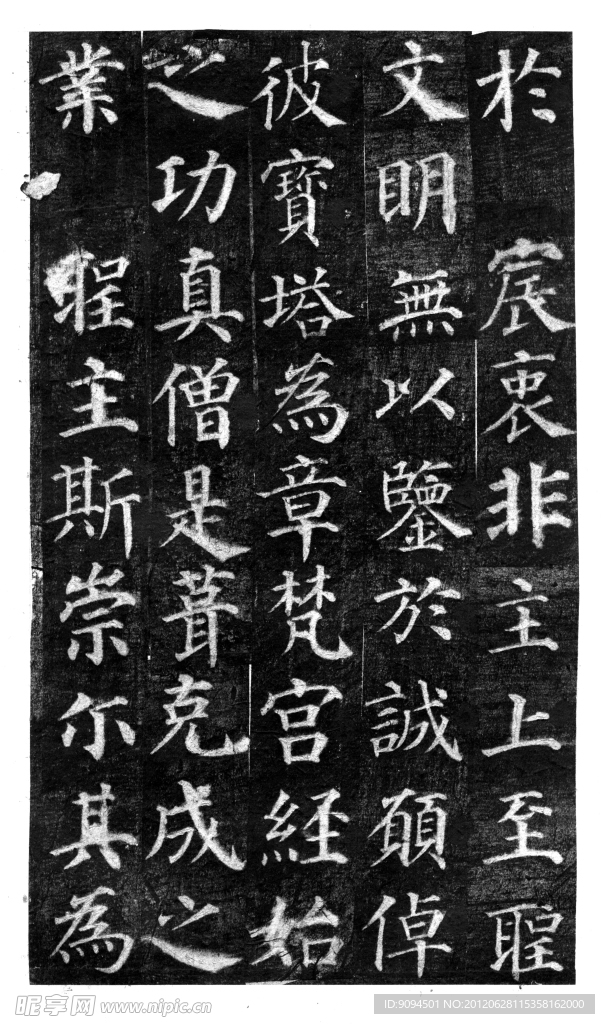 於宸衷非主上至聖
文明無以鑒於誠願倬
彼寶塔為章梵宮經始
之功真僧是葺克成之
業聖主斯崇尔其為
昵享网 www.nipic.cn
ID:9094501 NO:20120628115358162000